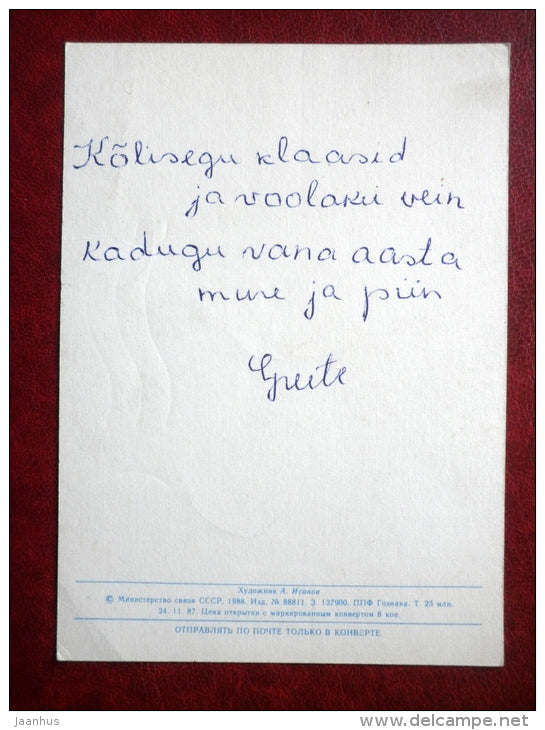 Kõlisegu klaasid
ja voolaku vein
Kadugu vana aasta
mure ja piin
Greete
Художник А. Исаков
© Министерство связи СССР, 1988. Изд. № 88811. З. 137900. ППФ Гознака. Т. 25 млн.
24. 11. 87. Цена открытки с маркированным конвертом 8 коп.
ОТПРАВЛЯТЬ ПО ПОЧТЕ ТОЛЬКО В КОНВЕРТЕ.
jaanhus
www.delcampe.net